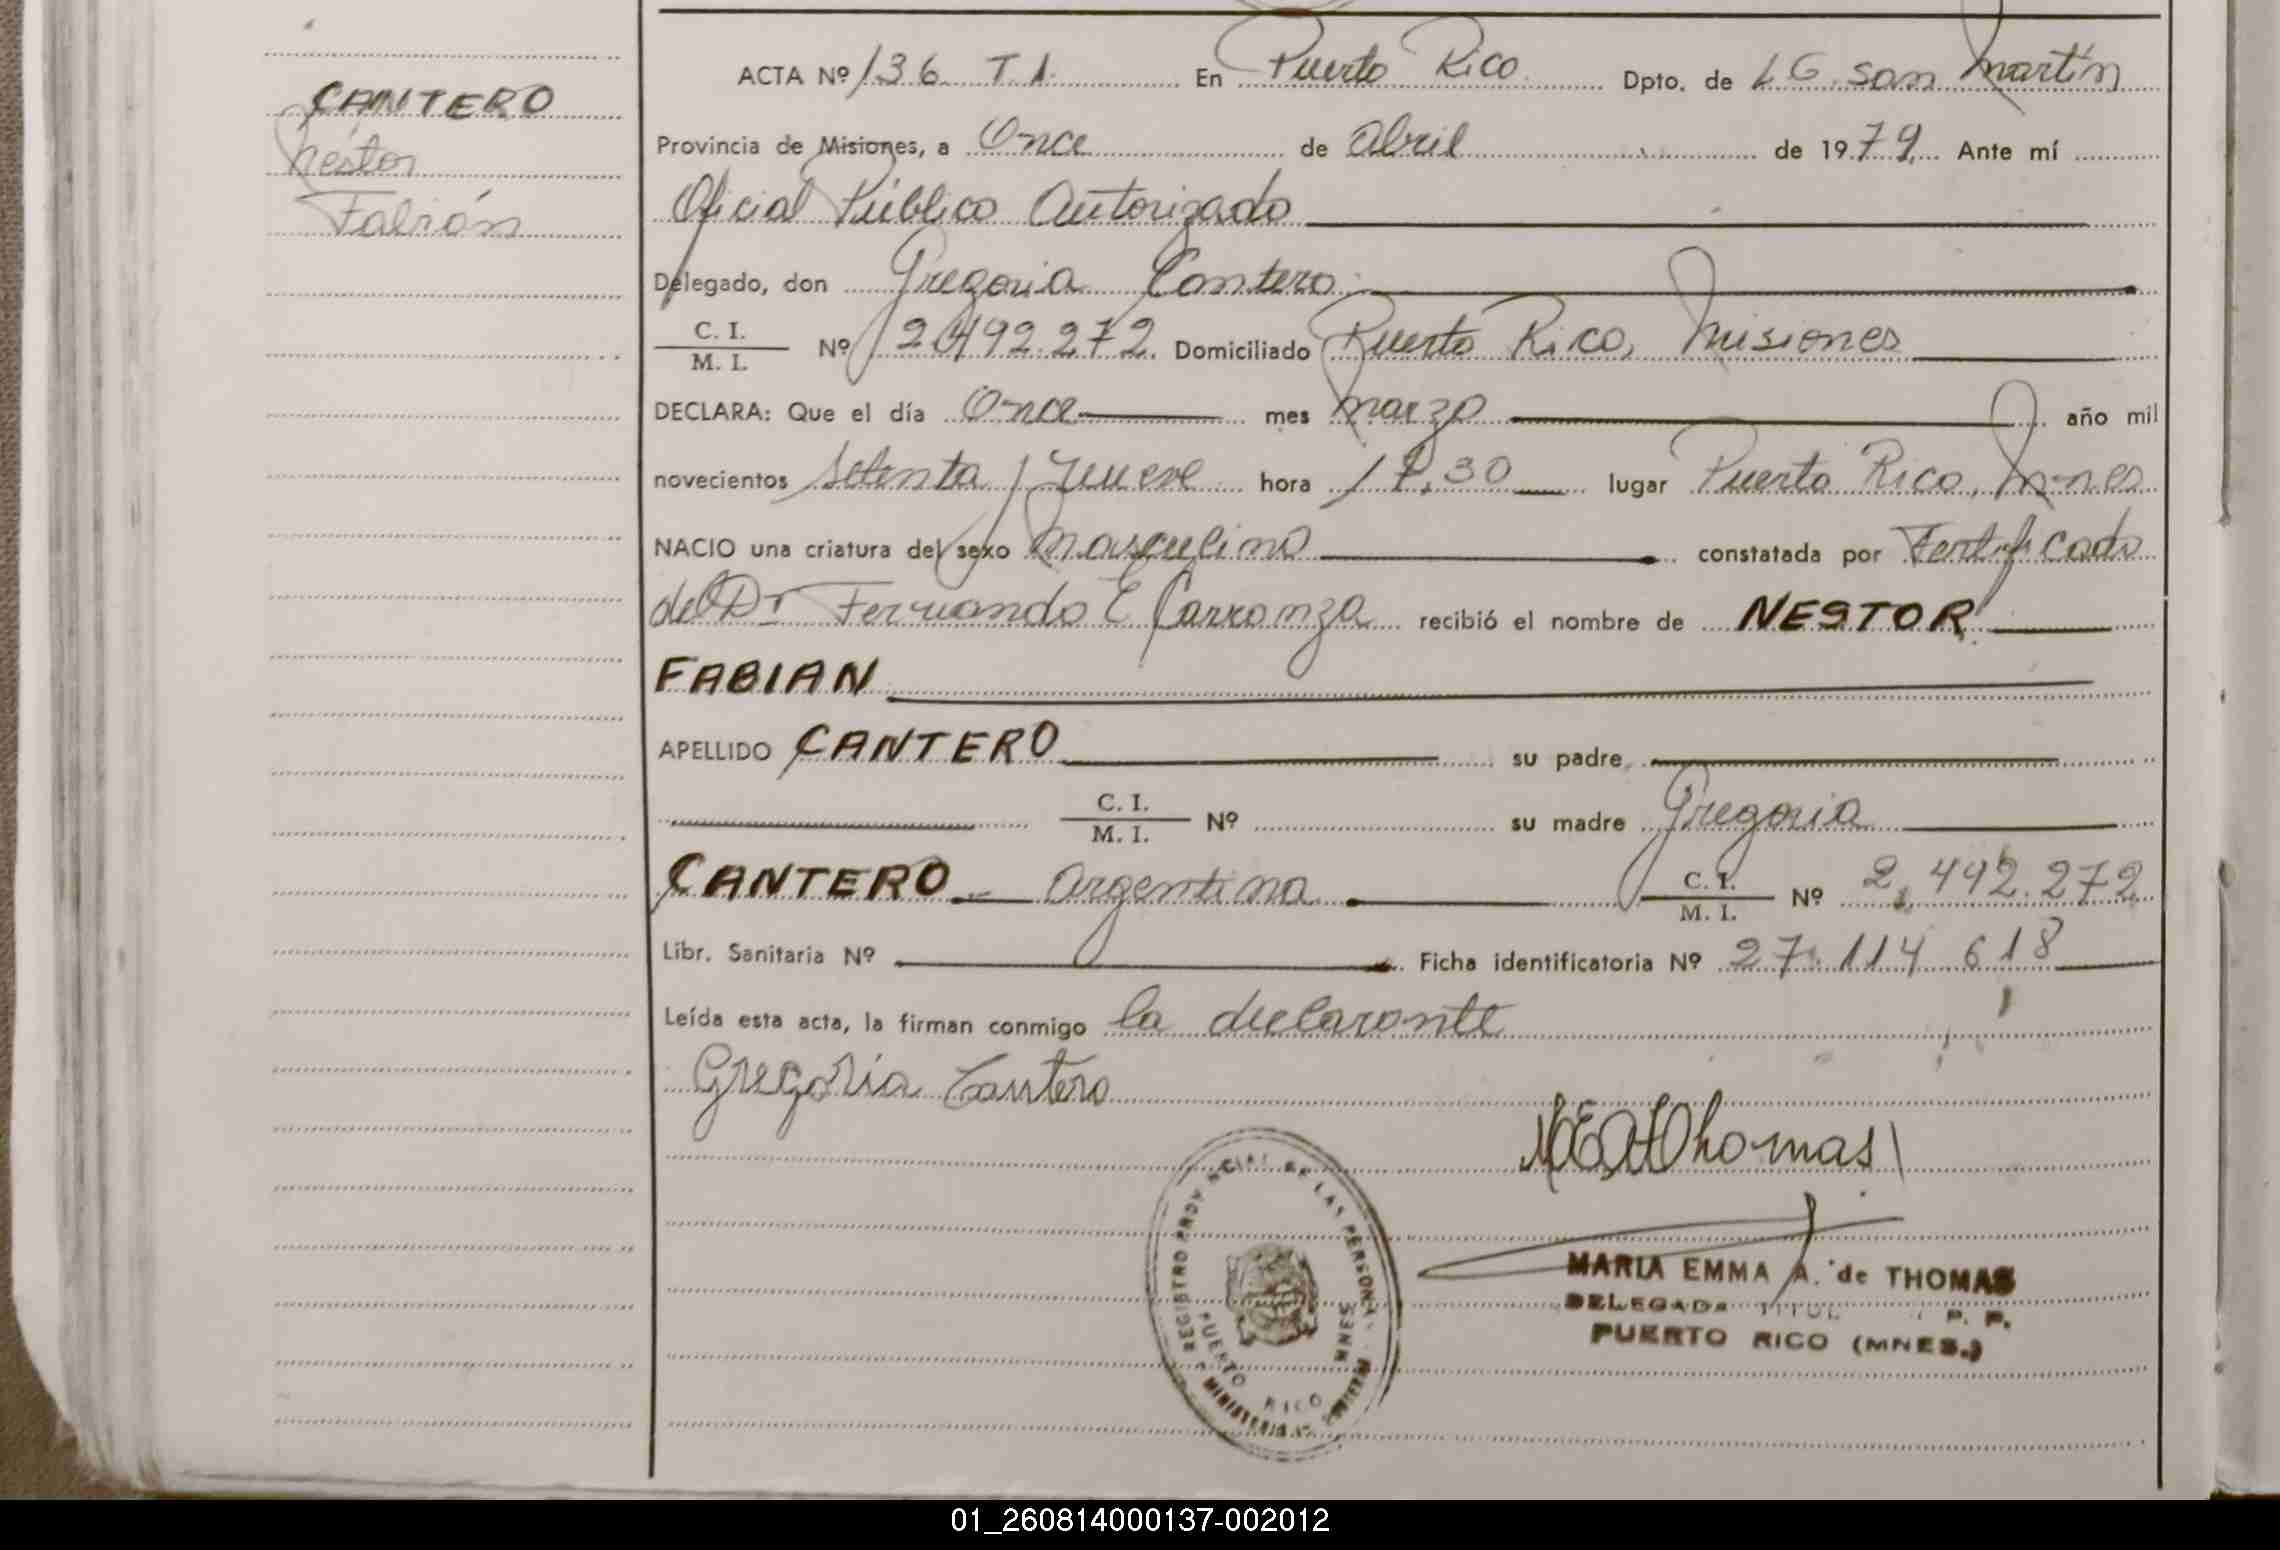 CANTERO
Néstor
Fabián
ACTA Nº 136 T.1. En Puerto Rico Dpto. de L.G. San Martín
Provincia de Misiones, a Once de abril de 1979. Ante mí
Oficial Público Autorizado
Delegado, don Gregoria Cantero
C. I. / M. I. Nº 2.492.272. Domiciliado Puerto Rico, Misiones
DECLARA: Que el día Once mes marzo año mil
novecientos setenta y nueve hora lugar Puerto Rico, Mnes
NACIO una criatura del sexo masculino constatada por Certificado
del Dr Fernando E Carranza recibió el nombre de NESTOR
FABIAN
APELLIDO CANTERO su padre
C. I. / M. I. Nº su madre Gregoria
CANTERO argentina C. I. / M. I. Nº 2.492.272
Libr. Sanitaria Nº Ficha identificatoria Nº 27.114 618
Leída esta acta, la firman conmigo la declarante
Gregoria Cantero
Thomas
REGISTRO PROVINCIAL DE LAS PERSONAS
PUERTO RICO MNES
MARIA EMMA A. de THOMAS
DELEGADA TITUL P. P.
PUERTO RICO (MNES.)
01_260814000137-002012